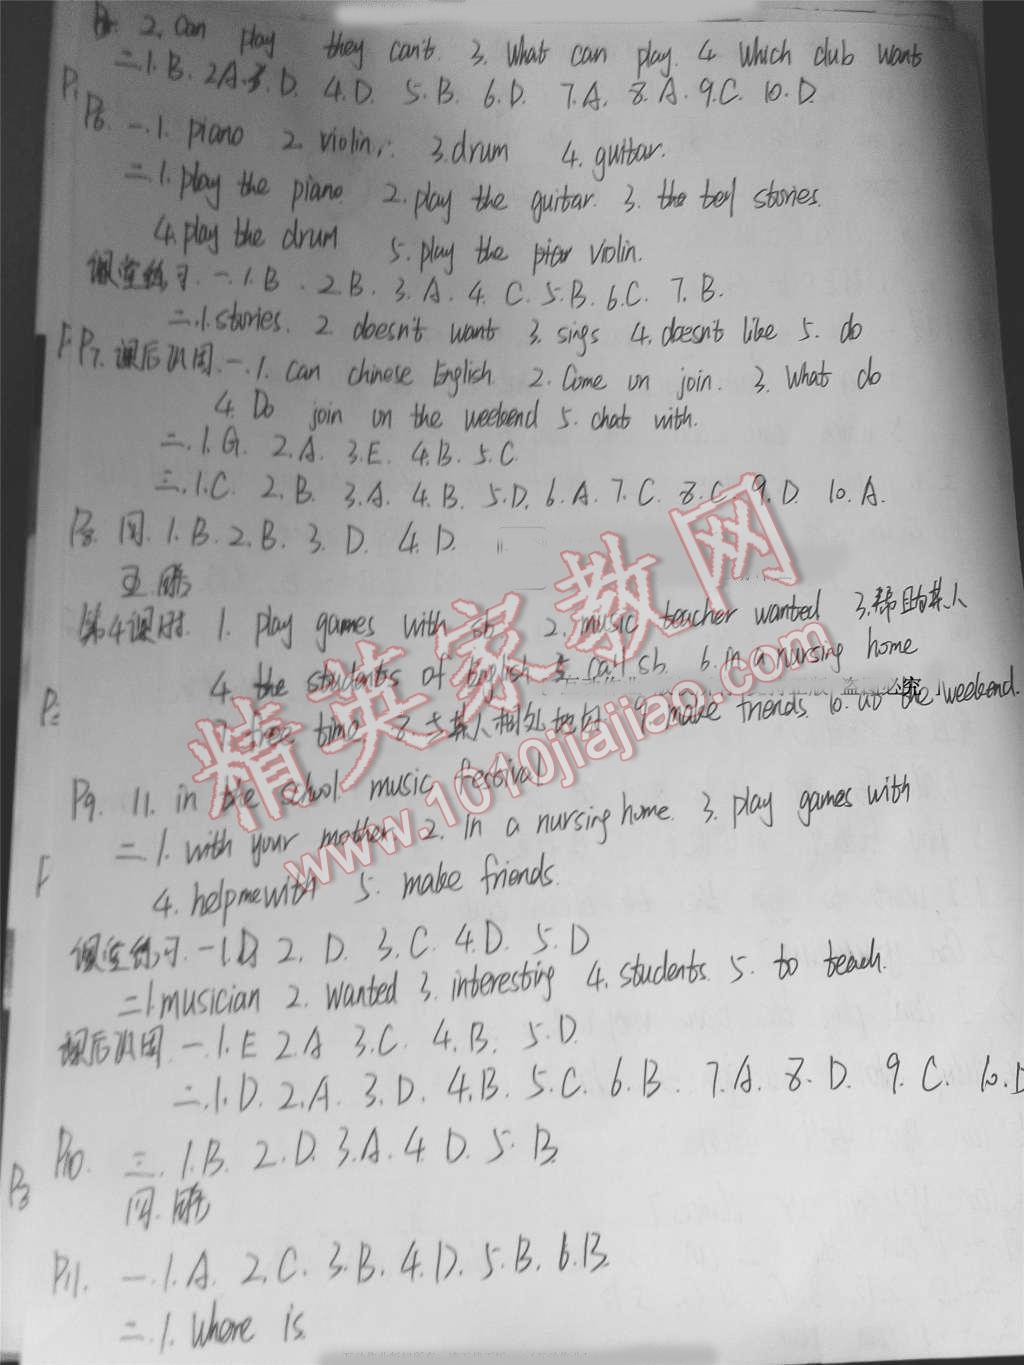 2. Can play they can't. 3. What can play. 4 Which club want
二.1.B. 2A.3.D. 4.D. 5.B. 6.D. 7.A. 8.A. 9.C. 10.D
P6. 一.1. piano 2. violin 3.drum 4. guitar.
二.1.play the piano 2.play the guitar. 3. tell stories.
4.play the drum 5.play the violin.
课堂练习.一.1.B 2.B. 3.A. 4.C. 5.B. 6.C. 7.B.
二.1.stories. 2. doesn't want 3. sings 4.doesn't like 5. do
P7. 课后巩固.一.1. Can chinese English 2. Come on join. 3. What do
4. Do join on the weekend 5. chat with.
二.1.G. 2.A. 3.E. 4.B. 5.C
三.1.C. 2.B. 3.A. 4.B. 5.D. 6.A. 7.C. 8.C 9.D. 10.A.
P8. 四.1.B. 2.B. 3.D. 4.D.
五.略
第4课时. 1. play games with sb 2. music teacher wanted 3.帮助某人
4. the students of English 5 call sb. 6. in a nursing home
7. free time 8. 与某人相处地好 9. make friends. 10. at the weekend.
P9. 11. in the school music festival
二.1. with your mother 2. in a nursing home. 3. play games with
4. help me with 5. make friends.
课堂练习.一.1.D 2.D. 3.C. 4.D. 5.D
二.1.musician 2. wanted 3. interesting 4.students. 5. to teach.
课后巩固.一.1.E 2.A 3.C. 4.B. 5.D.
二.1.D. 2.A. 3.D. 4.B. 5.C. 6.B. 7.A. 8.D. 9.C. 10.D
P10. 三.1.B. 2.D. 3.A. 4.D. 5.B
四.略
P11. 一.1.A. 2.C. 3.B. 4.D. 5.B. 6.B.
二.1. Where is
精英家教网
www.1010jiajiao.com